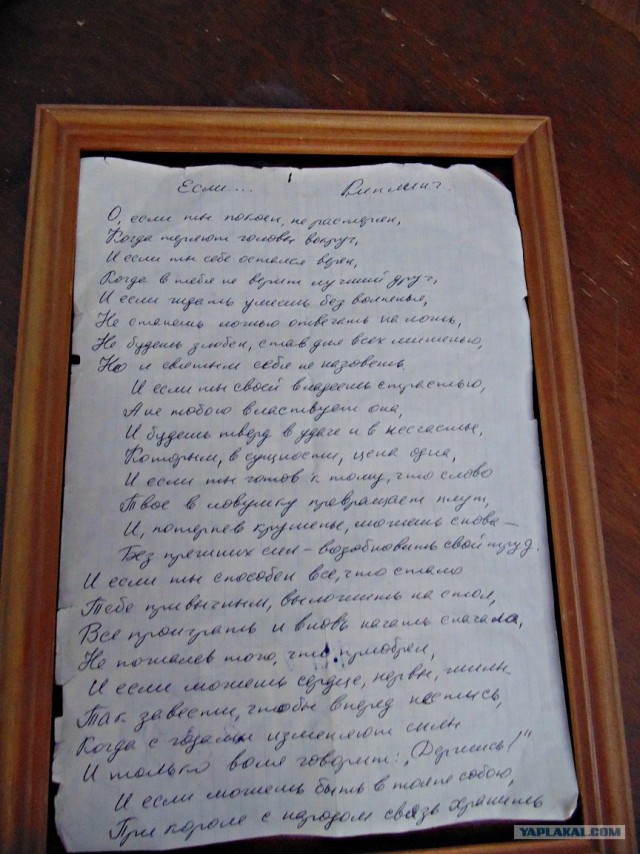 Если... Киплинг.
О, если ты покоен, не растерян,
Когда теряют головы вокруг,
И если ты себе остался верен,
Когда в тебя не верит лучший друг,
И если ждать умеешь без волненья,
Не станешь ложью отвечать на ложь,
Не будешь злобен, став для всех мишенью,
Но и святым себя не назовешь.
И если ты своей владеешь страстью,
А не тобою властвует она,
И будешь тверд в удаче и в несчастьи,
Которым, в сущности, цена одна,
И если ты готов к тому, что слово
Твое в ловушку превращает плут,
И, потерпев крушенье, можешь снова—
Без прежних сил — возобновить свой труд.
И если ты способен все, что стало
Тебе привычным, выложить на стол,
Все проиграть и вновь начать сначала,
Не пожалев того, что приобрел,
И если можешь сердце, нервы, жилы
Так завести, чтобы вперед нестись,
Когда с годами изменяют силы
И только воля говорит: „Держись!"
И если можешь быть в толпе собою,
При короле с народом связь хранить
YAPLAKAL.COM